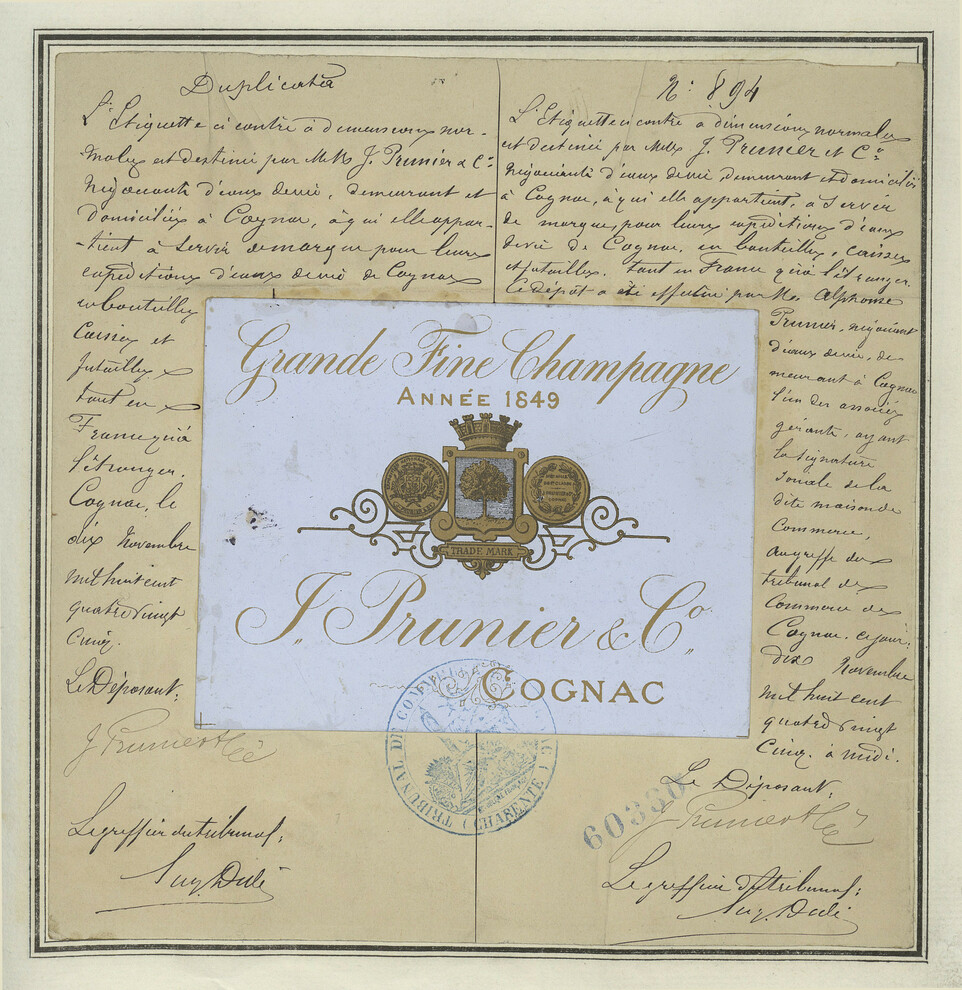 Duplicata
L'Etiquette ci contre à dimensions nor-
males est destinée par M.M. J. Prunier & Cie
négociants d'eaux devie, demeurant et
domiciliés à Cognac, à qui elle appar-
-tient à servir de marque pour leurs
expéditions d'eaux devie de Cognac
en bouteilles
Caisses et
futailles
tant en
France qu'à
l'étranger.
Cognac, le
dix Novembre
mil huit cent
quatre vingt
cinq.
Le Déposant:
J Prunier & Cie
Le greffier du tribunal:
N°: 894
L'Etiquette ci contre à dimensions normales
est destinée par M.M. J. Prunier et Co
négociants d'eaux devie, demeurant et domiciliés
à Cognac, à qui elle appartient, à servir
de marque pour leurs expéditions d'eaux
devie de Cognac en bouteilles, caisses
et futailles. tant en France qu'à l'étranger.
Le dépôt a été effectué par M. Alphonse
Prunier, négociant
d'eaux devie, de-
meurant à Cognac
l'un des associés
gérants, ayant
la signature
sociale de la
dite maison de
Commerce,
au greffe du
tribunal de
Commerce de
Cognac. ce jour:
dix Novembre
mil huit cent
quatre vingt
Cinq. à midi.
Le Déposant:
J Prunier & Cie
Le greffier du tribunal:
Grande Fine Champagne
ANNÉE 1849
TRADE MARK
J. Prunier & Co.
COGNAC
TRIBUNAL DE COMMERCE
(CHARENTE)
60330